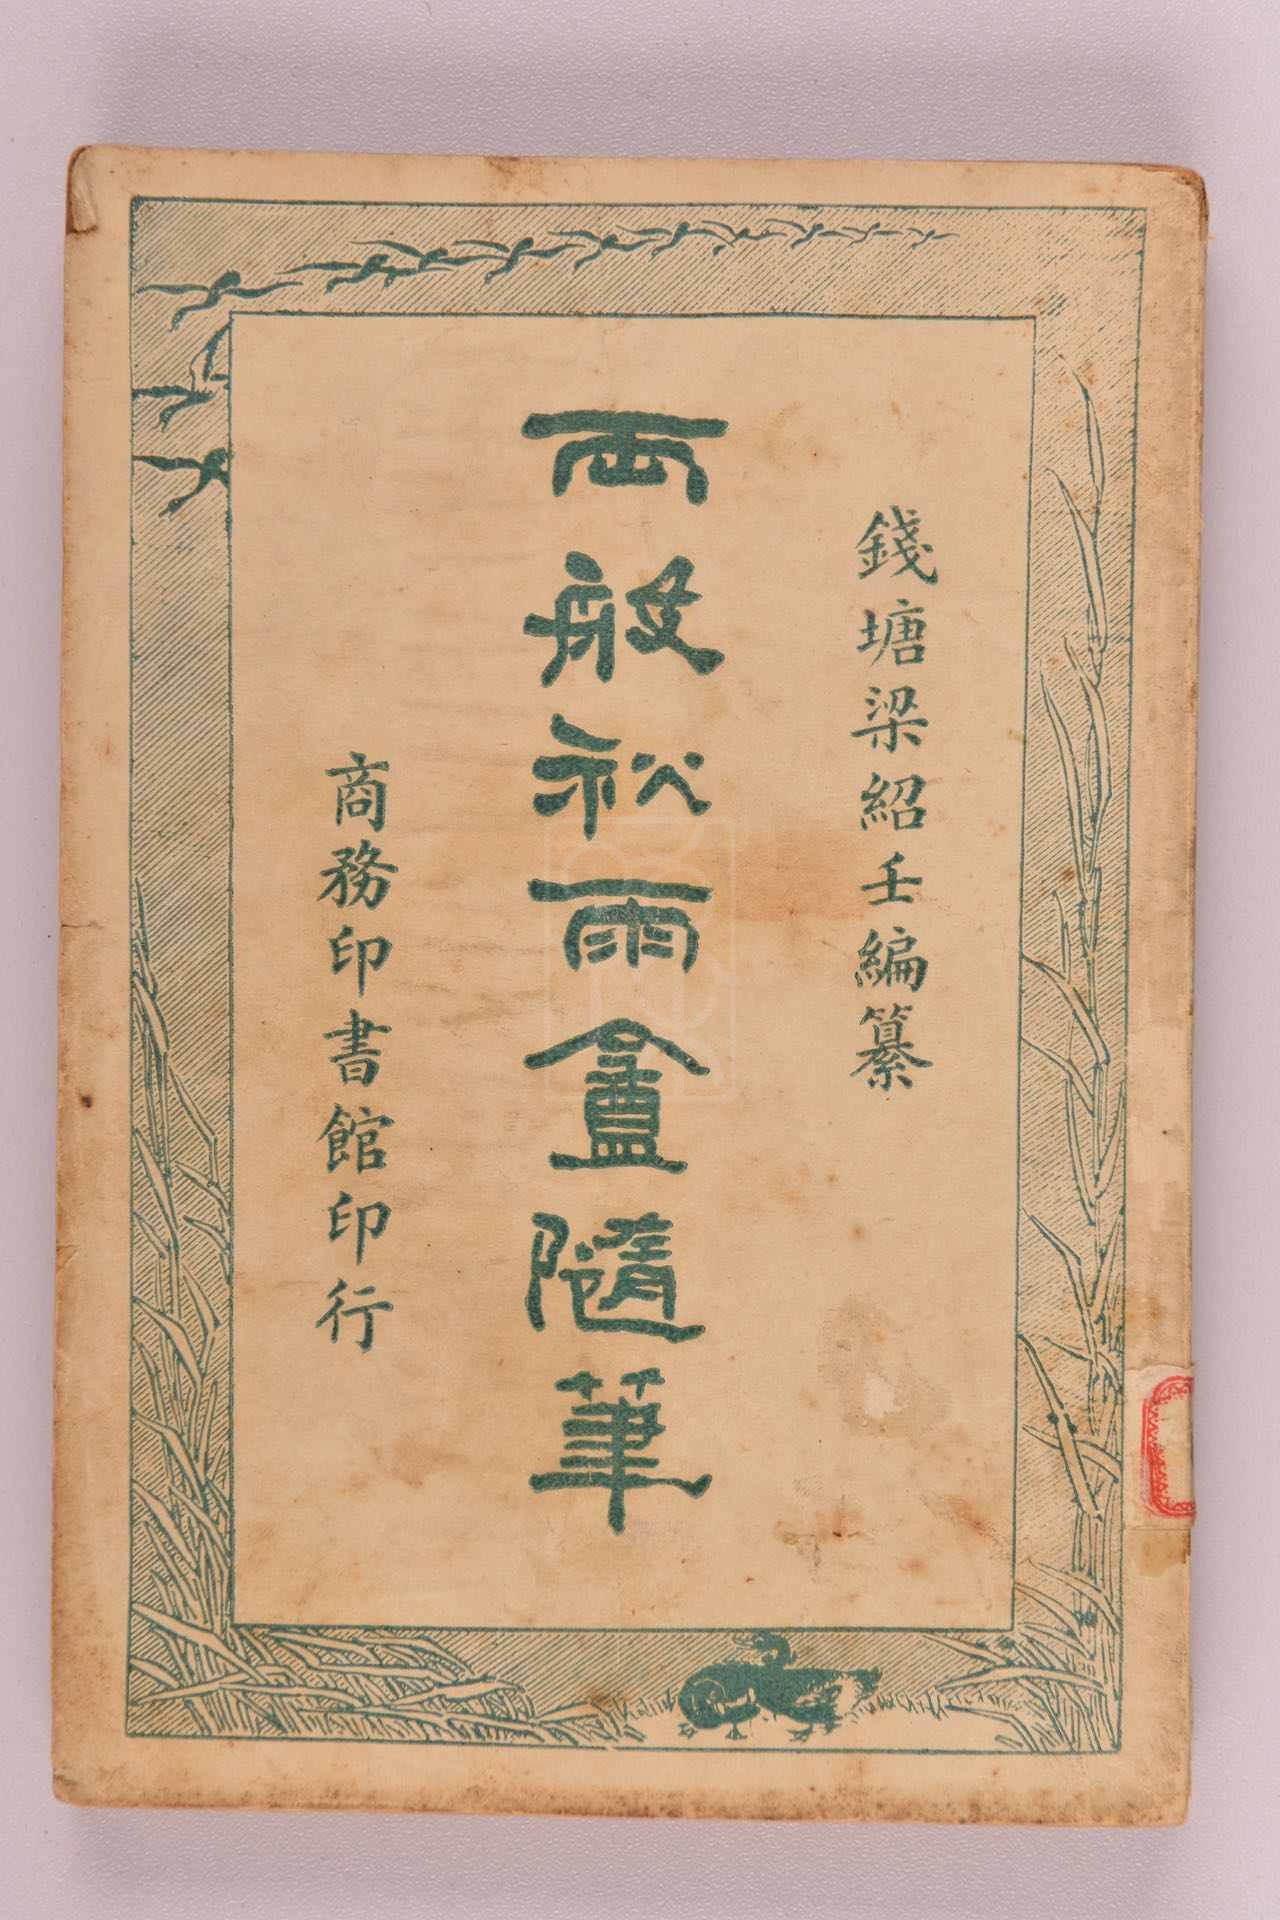 錢塘梁紹壬編纂
兩般秋雨盦隨筆
商務印書館印行